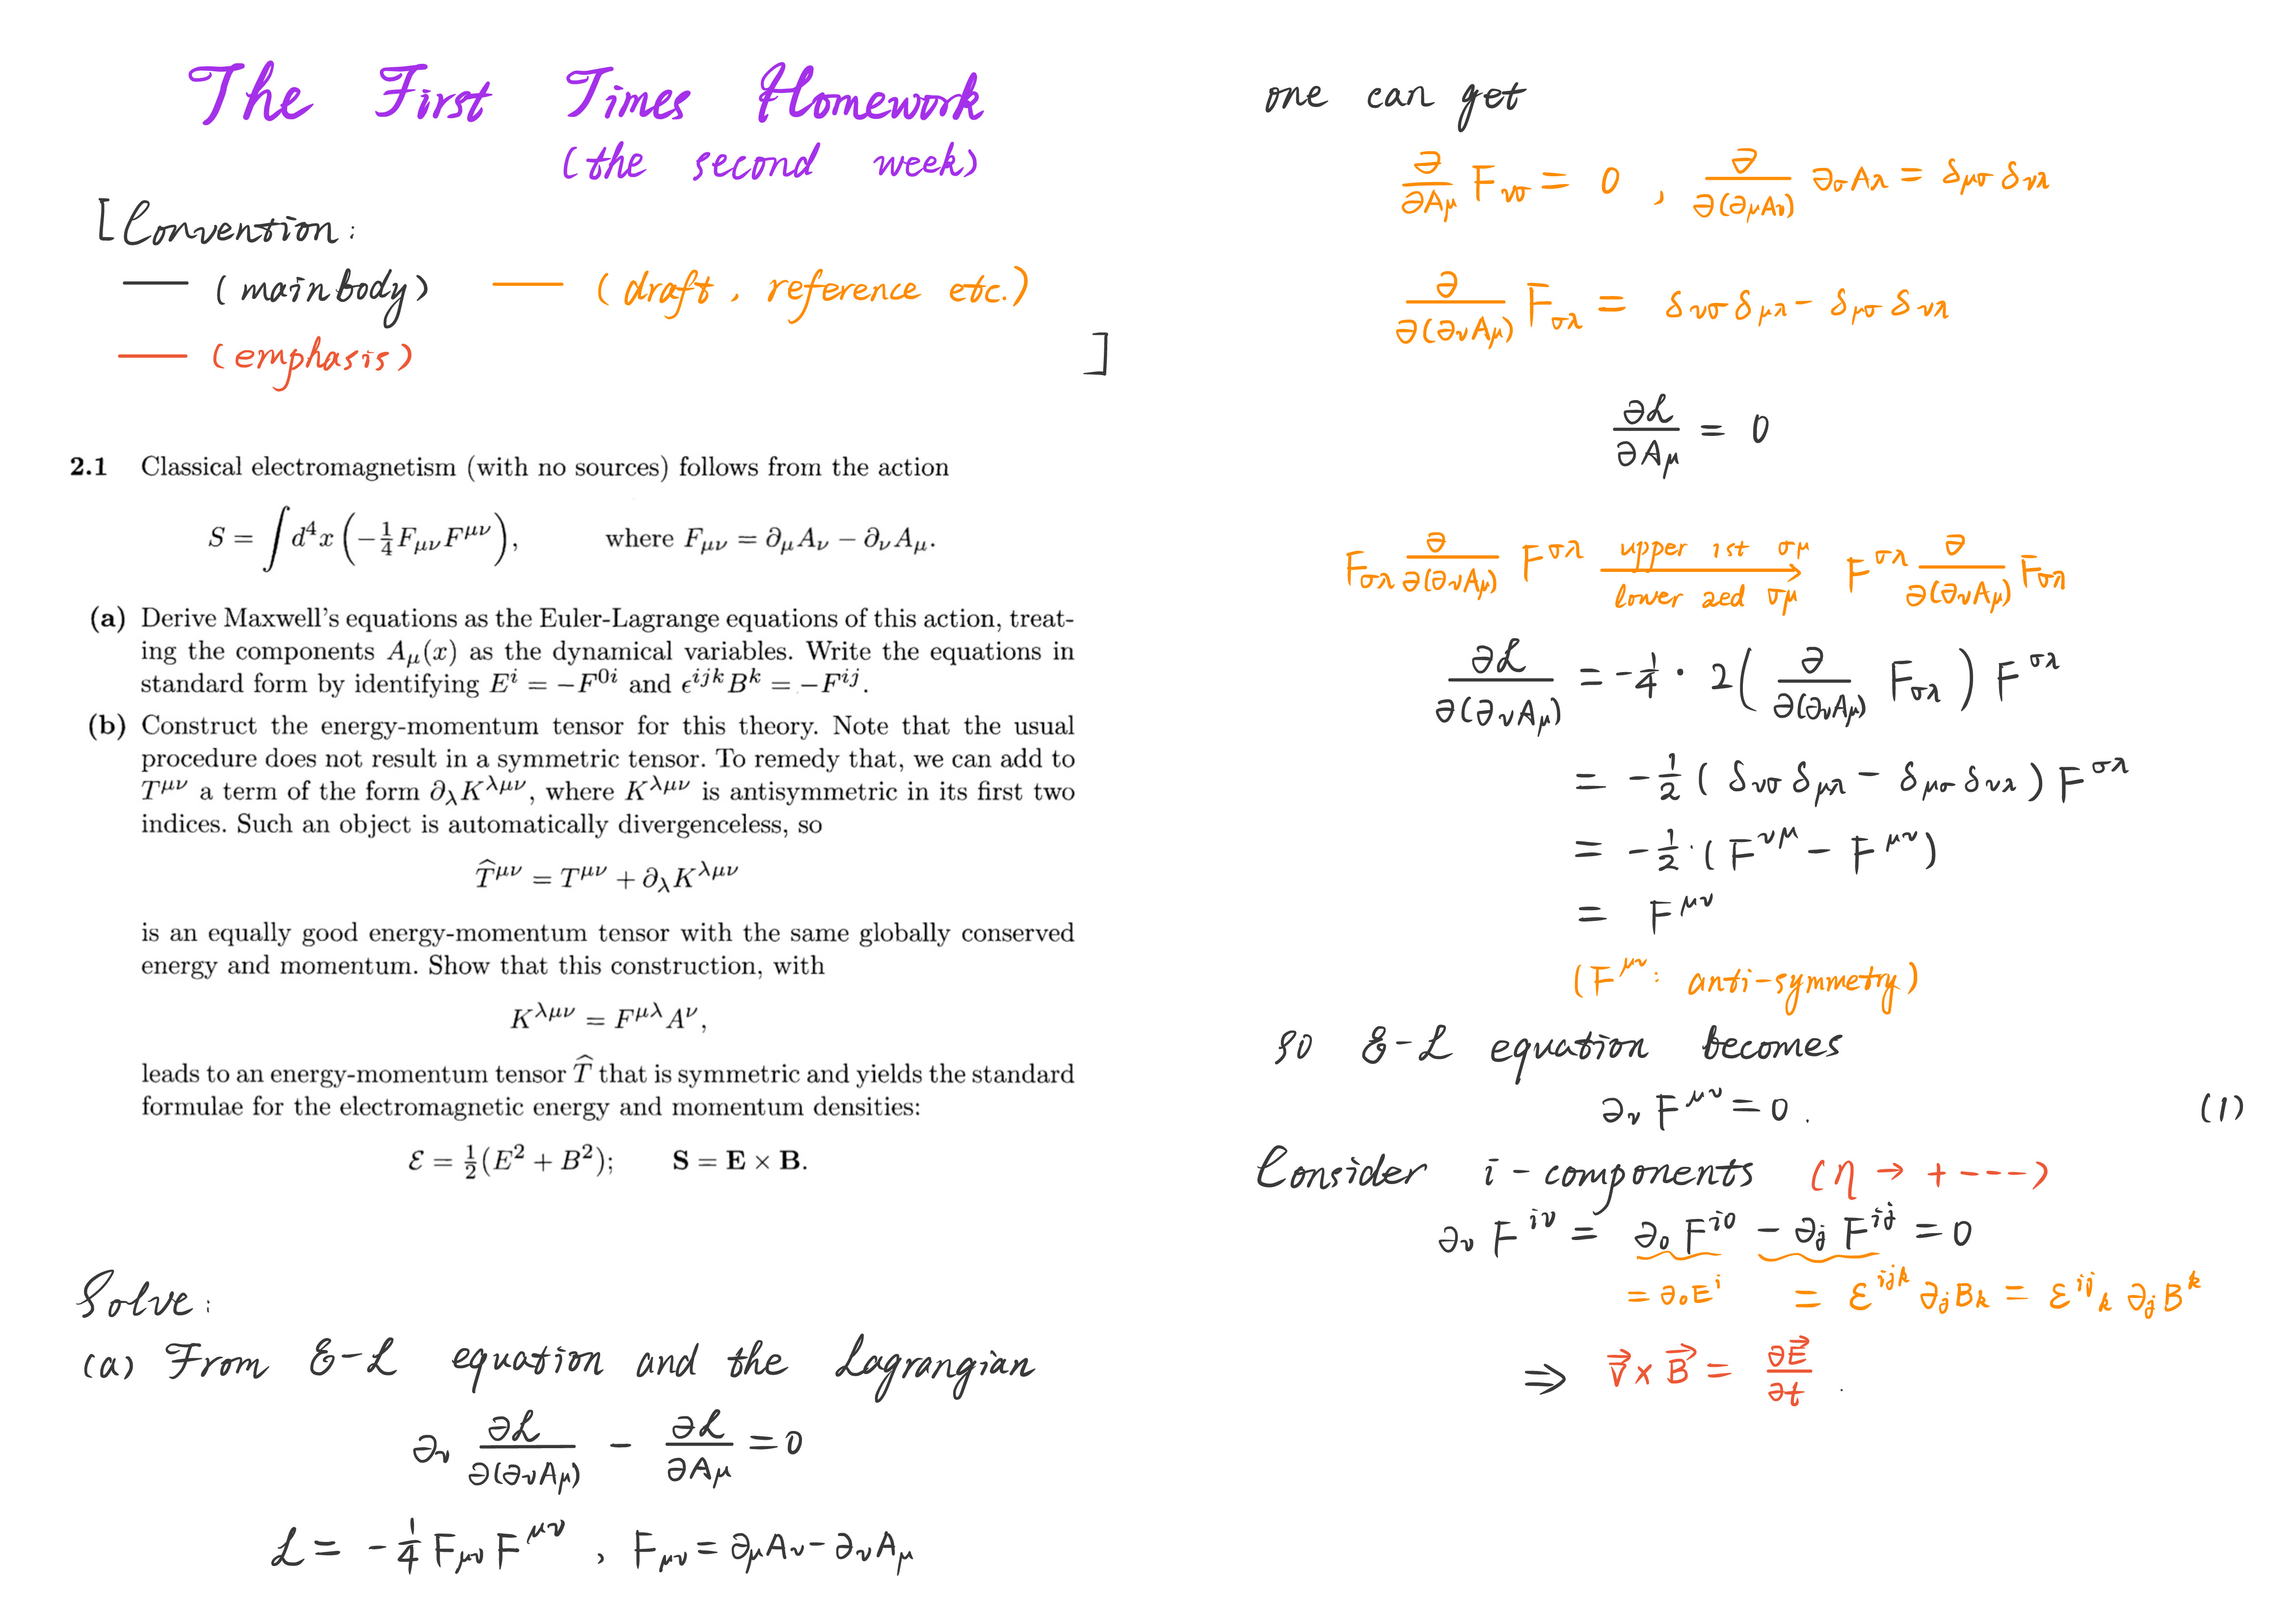 The First Times Homework
(the second week)
[Convention:
— (main body) — (draft, reference etc.)
— (emphasis)
]
2.1 Classical electromagnetism (with no sources) follows from the action
S = ∫ d⁴x (−¼ F_{μν}F^{μν}), where F_{μν} = ∂_μ A_ν − ∂_ν A_μ.
(a) Derive Maxwell's equations as the Euler-Lagrange equations of this action, treat-
ing the components A_μ(x) as the dynamical variables. Write the equations in
standard form by identifying E^i = −F^{0i} and ϵ^{ijk}B^k = −F^{ij}.
(b) Construct the energy-momentum tensor for this theory. Note that the usual
procedure does not result in a symmetric tensor. To remedy that, we can add to
T^{μν} a term of the form ∂_λ K^{λμν}, where K^{λμν} is antisymmetric in its first two
indices. Such an object is automatically divergenceless, so
T̂^{μν} = T^{μν} + ∂_λ K^{λμν}
is an equally good energy-momentum tensor with the same globally conserved
energy and momentum. Show that this construction, with
K^{λμν} = F^{μλ}A^ν,
leads to an energy-momentum tensor T̂ that is symmetric and yields the standard
formulae for the electromagnetic energy and momentum densities:
ℰ = ½(E² + B²); S = E × B.
Solve:
(a) From E-L equation and the Lagrangian
∂_ν ∂ℒ/∂(∂_ν A_μ) − ∂ℒ/∂A_μ = 0
ℒ = −¼ F_{μν} F^{μν}, F_{μν} = ∂_μ A_ν − ∂_ν A_μ
one can get
∂/∂A_μ F_{νσ} = 0, ∂/∂(∂_μ A_ν) ∂_σ A_λ = δ_{μσ} δ_{νλ}
∂/∂(∂_ν A_μ) F_{σλ} = δ_{νσ} δ_{μλ} − δ_{μσ} δ_{νλ}
∂ℒ/∂A_μ = 0
F_{σλ} ∂/∂(∂_ν A_μ) F^{σλ} upper 1st σμ / lower 2ed σμ → F^{σλ} ∂/∂(∂_ν A_μ) F_{σλ}
∂ℒ/∂(∂_ν A_μ) = −¼ · 2(∂/∂(∂_ν A_μ) F_{σλ}) F^{σλ}
= −½ (δ_{νσ} δ_{μλ} − δ_{μσ} δ_{νλ}) F^{σλ}
= −½ · (F^{νμ} − F^{μν})
= F^{μν}
(F^{μν}: anti-symmetry)
so E-L equation becomes
∂_ν F^{μν} = 0. (1)
Consider i-components (η → + − − −)
∂_ν F^{iν} = ∂_0 F^{i0} − ∂_j F^{ij} = 0
= ∂_0 E^i = ε^{ijk} ∂_j B_k = ε^{ij}_k ∂_j B^k
⇒ ∇⃗ × B⃗ = ∂E⃗/∂t .